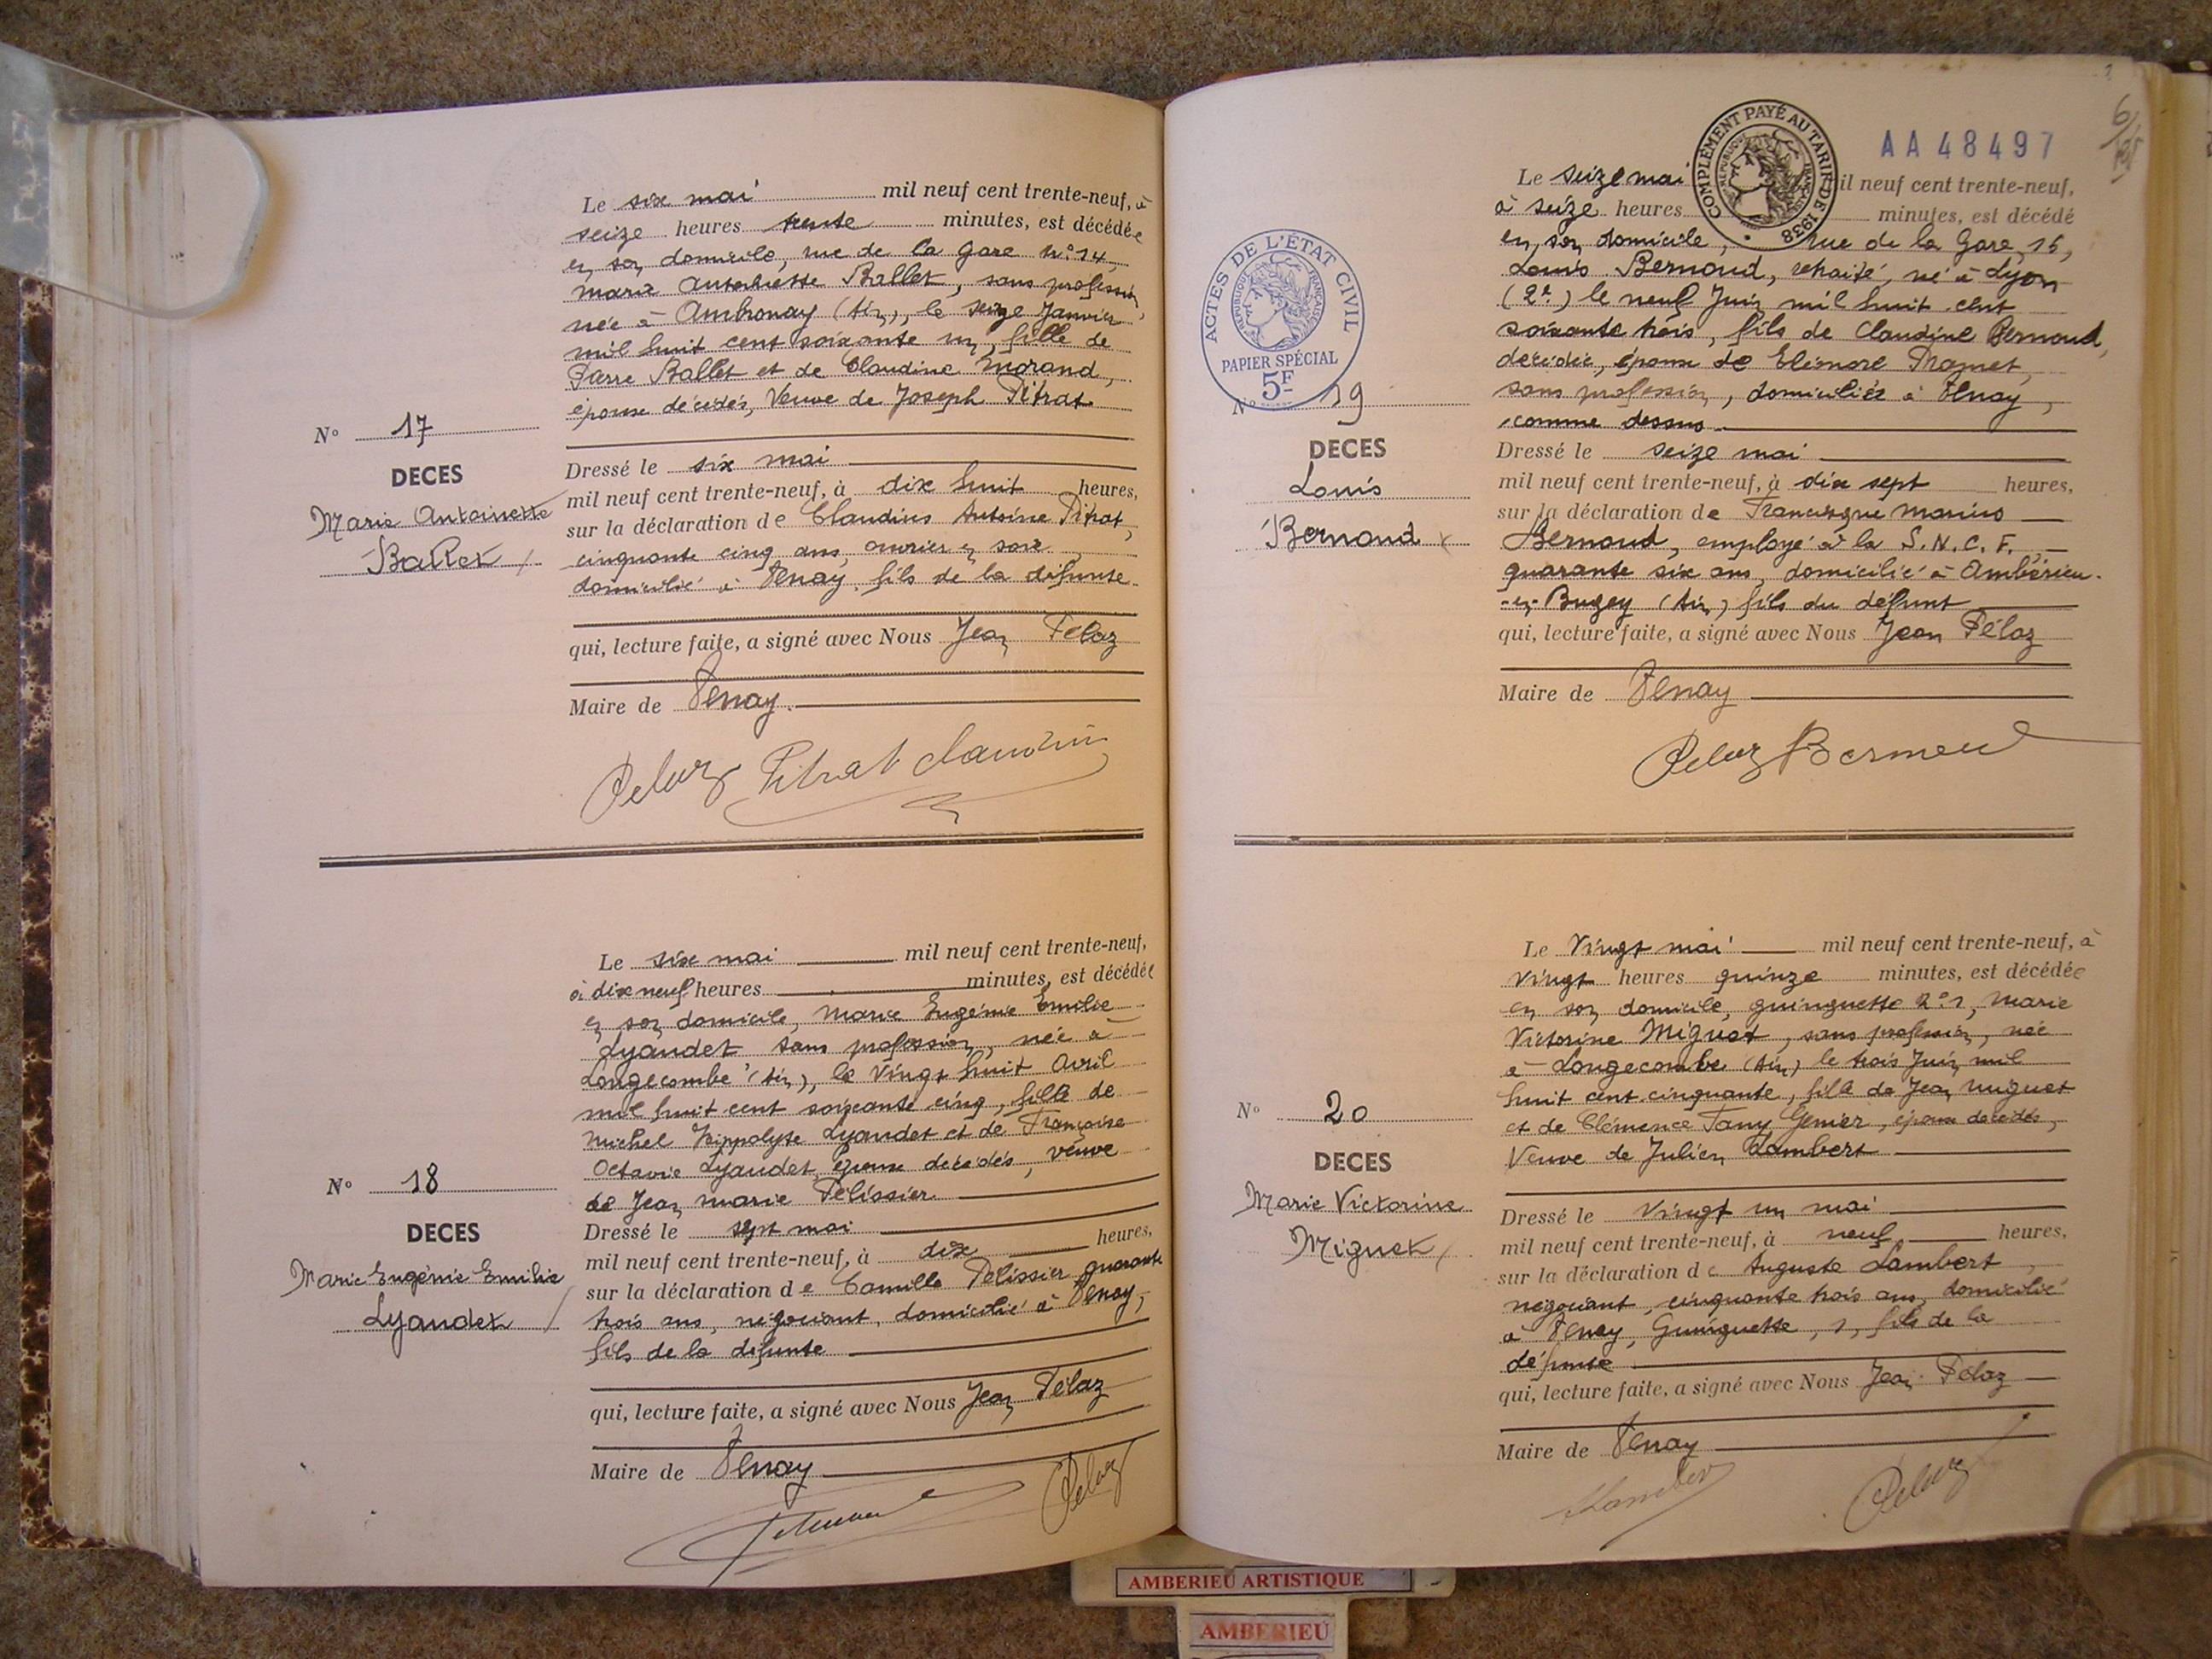 Le six mai mil neuf cent trente-neuf, à
seize heures trente minutes, est décédée
en son domicile, rue de la Gare N° 14,
Marie Antoinette Ballet, sans profession,
née à Ambronay (Ain), le seize Janvier
mil huit cent soixante un, fille de
Pierre Ballet et de Claudine Morand,
époux décédés, Veuve de Joseph Pitrat
N° 17
DECES
Marie Antoinette
Ballet
Dressé le six mai
mil neuf cent trente-neuf, à dix huit heures,
sur la déclaration de Claudius Antoine Pitrat,
cinquante cinq ans, ouvrier en soie
domicilié à Tenay, fils de la défunte
qui, lecture faite, a signé avec Nous Jean Pélaz
Maire de Tenay.
Pelaz Pitrat Claudius
Le six mai mil neuf cent trente-neuf,
à dix neuf heures minutes, est décédée
en son domicile, Marie Eugénie Emilie
Lyaudet sans profession, née à
Longecombe (Ain), le vingt huit Avril
mil huit cent soixante cinq, fille de
Michel Hippolyte Lyaudet et de Françoise
Octavie Lyaudet, époux décédés, veuve
de Jean Marie Pélissier
N° 18
DECES
Marie Eugénie Emilie
Lyaudet
Dressé le sept mai
mil neuf cent trente-neuf, à dix heures,
sur la déclaration de Camille Pélissier quarante
trois ans, négociant, domicilié à Tenay,
fils de la défunte
qui, lecture faite, a signé avec Nous Jean Pélaz
Maire de Tenay
Pelaz
COMPLÉMENT PAYÉ AU TARIF DE 1938
RÉPUBLIQUE FRANÇAISE
AA 48497
Le seize mai mil neuf cent trente-neuf,
à seize heures minutes, est décédé
en son domicile, rue de la Gare, 16,
Louis Bernoud, retraité, né à Lyon
(2e) le neuf Juin mil huit cent
soixante trois, fils de Claudine Bernoud,
décédée, époux de Eléonore Dromet,
sans profession, domiciliée à Tenay,
comme dessus
ACTES DE L'ÉTAT CIVIL
RÉPUBLIQUE FRANÇAISE
PAPIER SPÉCIAL
5F
N° 19
DECES
Louis
Bernoud
Dressé le seize mai
mil neuf cent trente-neuf, à dix sept heures,
sur la déclaration de Francisque Marius
Bernoud, employé à la S.N.C.F.,
quarante six ans, domicilié à Ambérieu-
-en-Bugey (Ain) fils du défunt
qui, lecture faite, a signé avec Nous Jean Pélaz
Maire de Tenay
Pelaz Bernoud
Le vingt mai mil neuf cent trente-neuf, à
vingt heures quinze minutes, est décédée
en son domicile, guinguette n° 1, Marie
Victorine Miguet, sans profession, née
à Longecombe (Ain) le trois Juin mil
huit cent cinquante, fille de Jean Miguet
et de Clémence Fany Genier, époux décédés,
Veuve de Julien Lambert
N° 20
DECES
Marie Victorine
Miguet
Dressé le vingt un mai
mil neuf cent trente-neuf, à neuf heures,
sur la déclaration de Auguste Lambert,
négociant, cinquante trois ans, domicilié
à Tenay, Guinguette, 1, fils de la
défunte
qui, lecture faite, a signé avec Nous Jean Pélaz
Maire de Tenay
Lambert Pelaz
AMBERIEU ARTISTIQUE
AMBERIEU